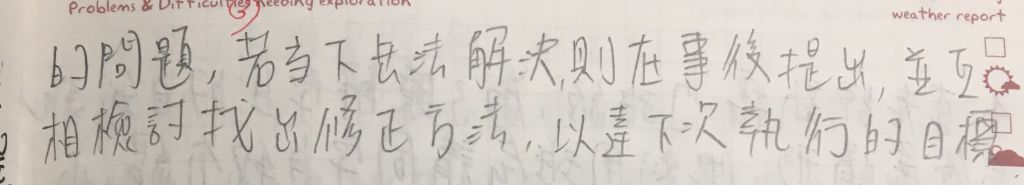 Problems & Difficulties needing exploration
weather report
的問題,若當下無法解決,則在事後提出,並互
相檢討找出修正方法,以達下次執行的目標